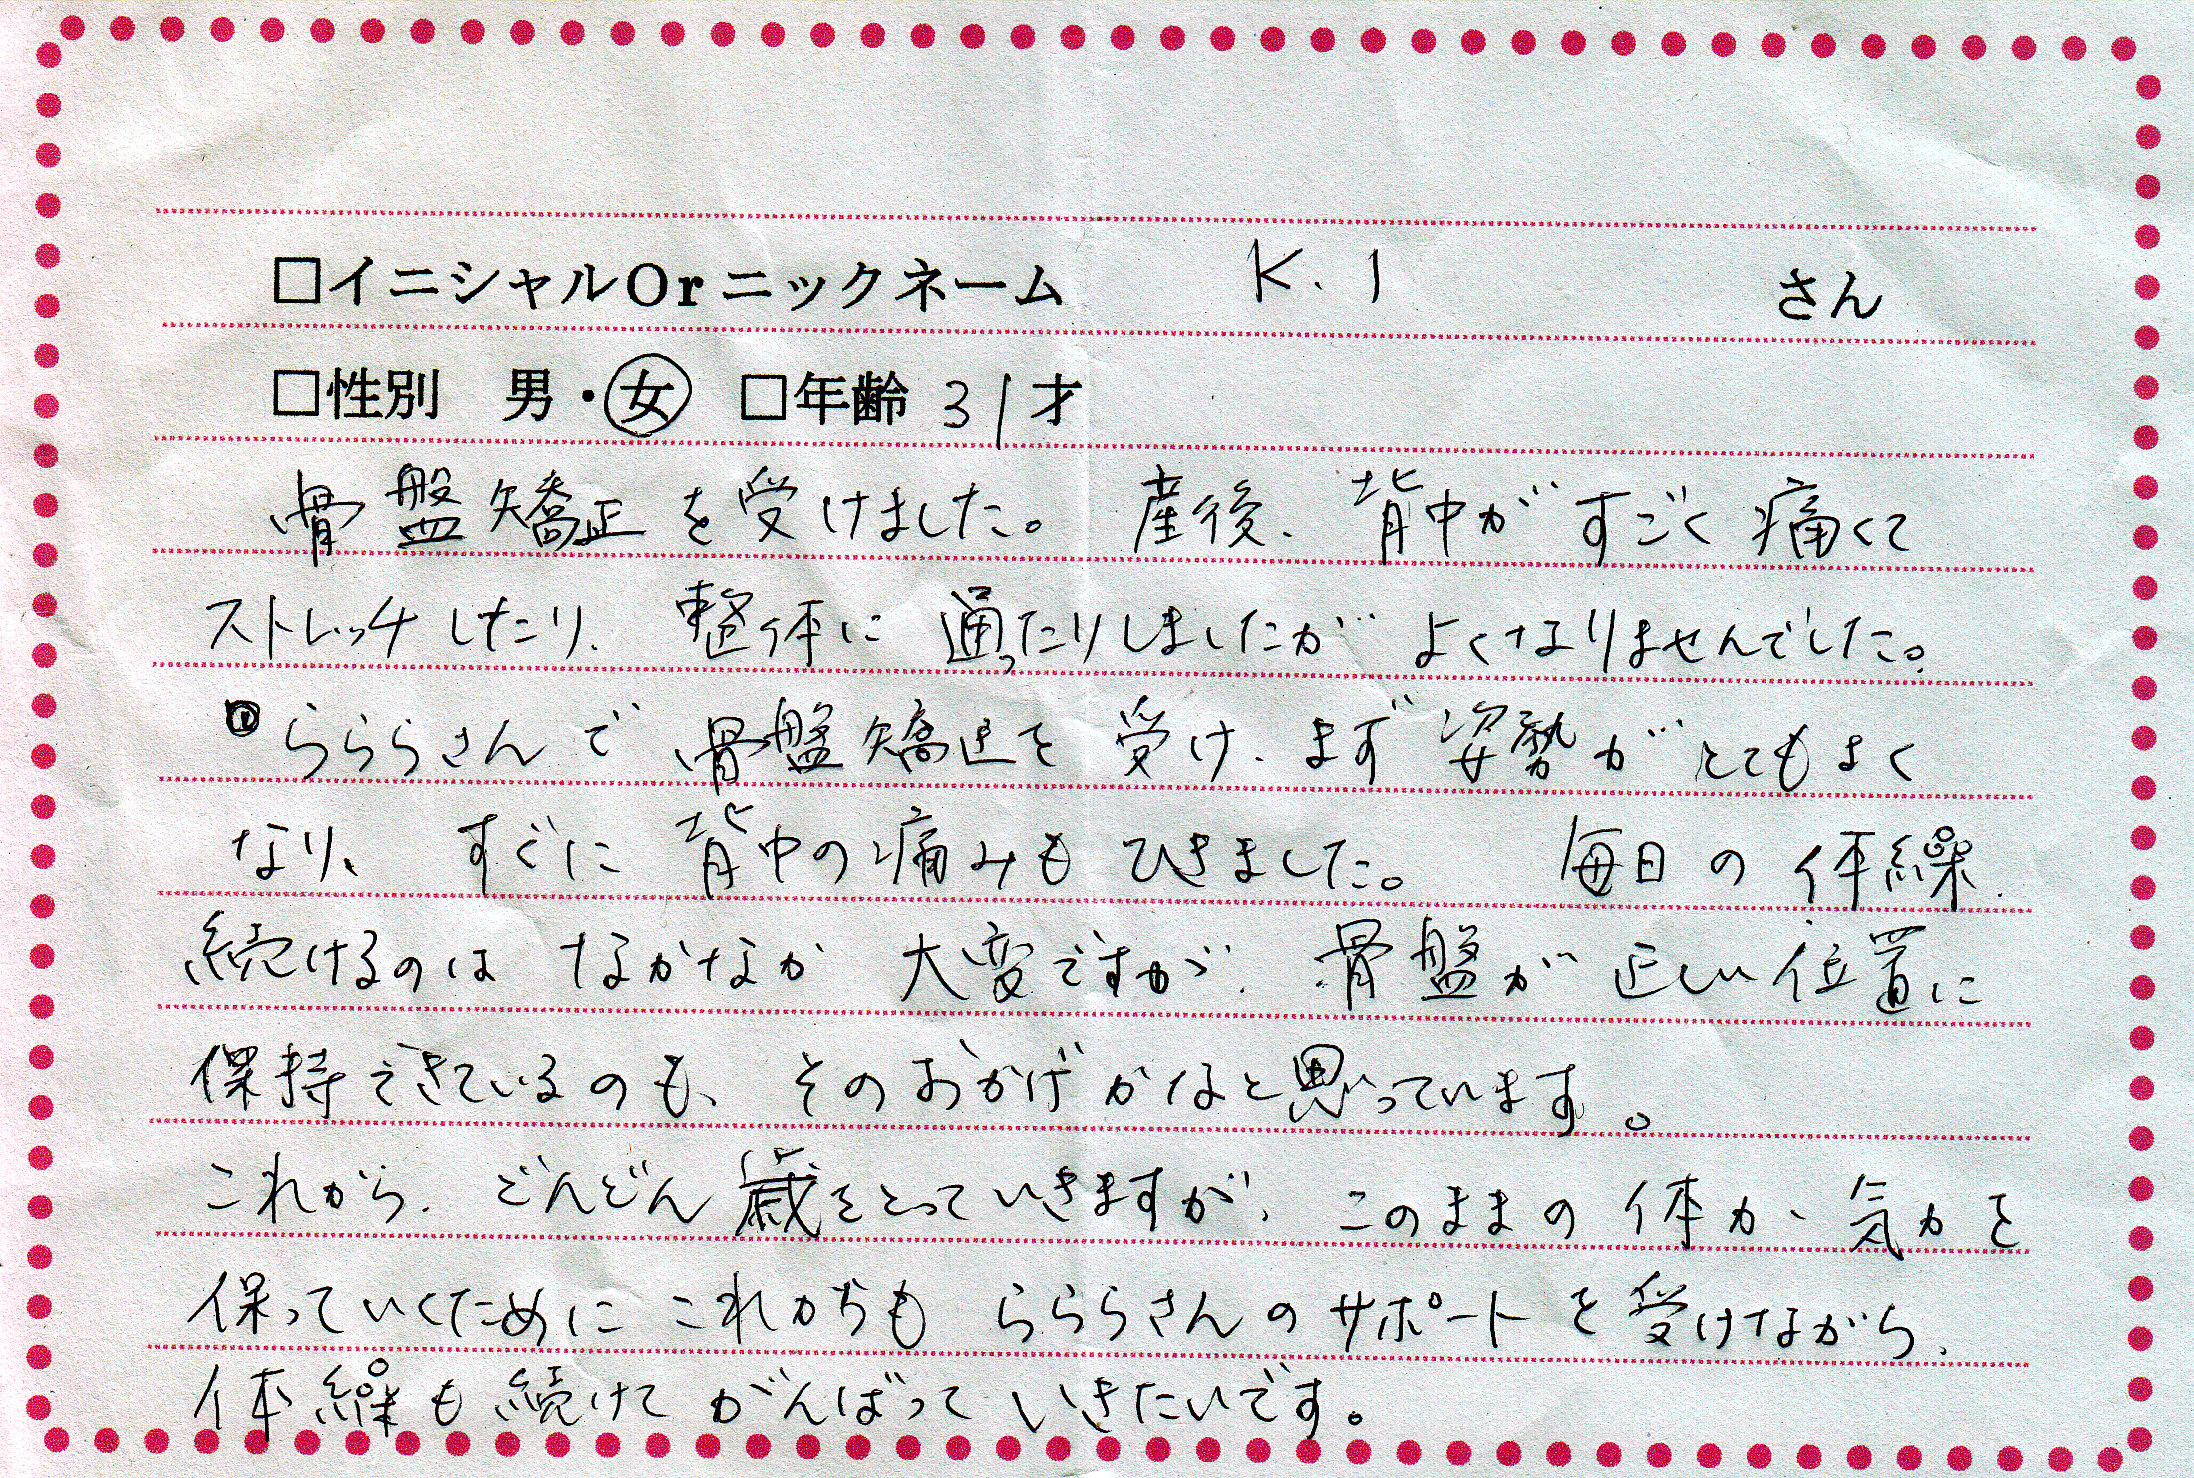 □イニシャルOrニックネーム K.I さん
□性別 男・女 □年齢 31才
骨盤矯正を受けました。産後、背中がすごく痛くて
ストレッチしたり、整体に通ったりしましたがよくなりませんでした。
らららさんで骨盤矯正を受け、まず姿勢がとてもよく
なり、すぐに背中の痛みもひきました。 毎日の体操
続けるのはなかなか大変ですが、骨盤が正しい位置に
保持できているのも、そのおかげかなと思っています。
これから、どんどん歳をとっていきますが、このままの体力、気力を
保っていくためにこれからもらららさんのサポートを受けながら、
体操も続けてがんばっていきたいです。